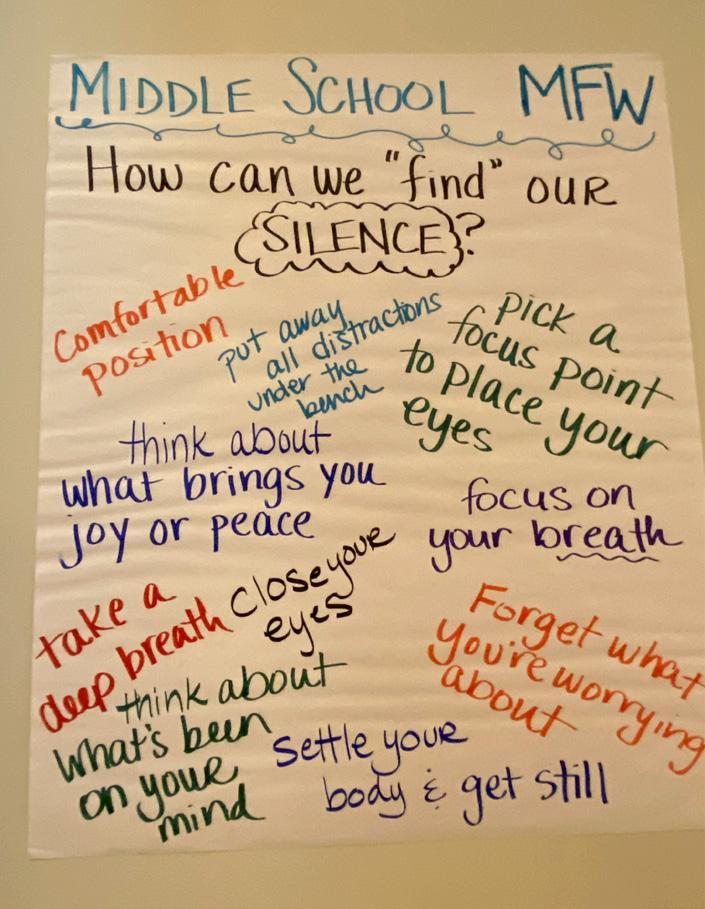 MIDDLE SCHOOL MFW
How can we "find" our
SILENCE?
Comfortable
position
put away
all distractions
under the
bench
pick a
focus point
to place your
eyes
think about
what brings you
joy or peace
focus on
your breath
take a
deep breath
close your
eyes
Forget what
you're worrying
about
think about
what's been
on your
mind
Settle your
body & get still